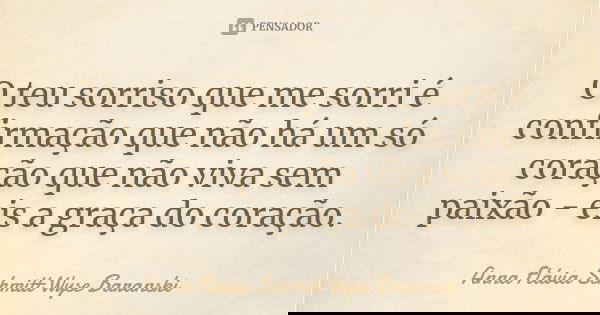 PENSADOR
O teu sorriso que me sorri é
confirmação que não há um só
coração que não viva sem
paixão - eis a graça do coração.
Anna Flávia Schmitt Wyse Baranski